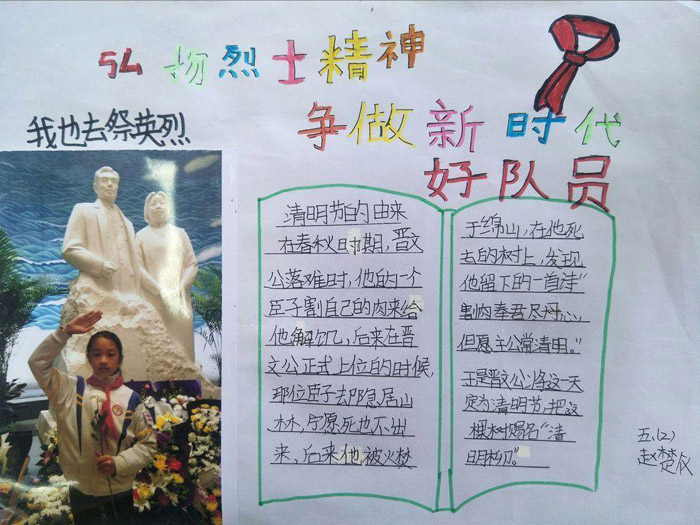 弘扬烈士精神
争做新时代
好队员
我也去祭英烈
清明节的由来
在春秋时期,晋文
公落难时,他的一个
臣子割自己的肉来给
他解饥,后来在晋
文公正式上位的时候,
那位臣子却隐居山
林,宁愿死也不出
来,后来他被火焚
于绵山,在他死
去的树上,发现
他留下的一首诗“
割肉奉君尽丹心,
但愿主公常清明。”
于是晋文公将这一天
定为清明节,把这
棵树赐名“清
明柳”
五、(2)
赵楚仪